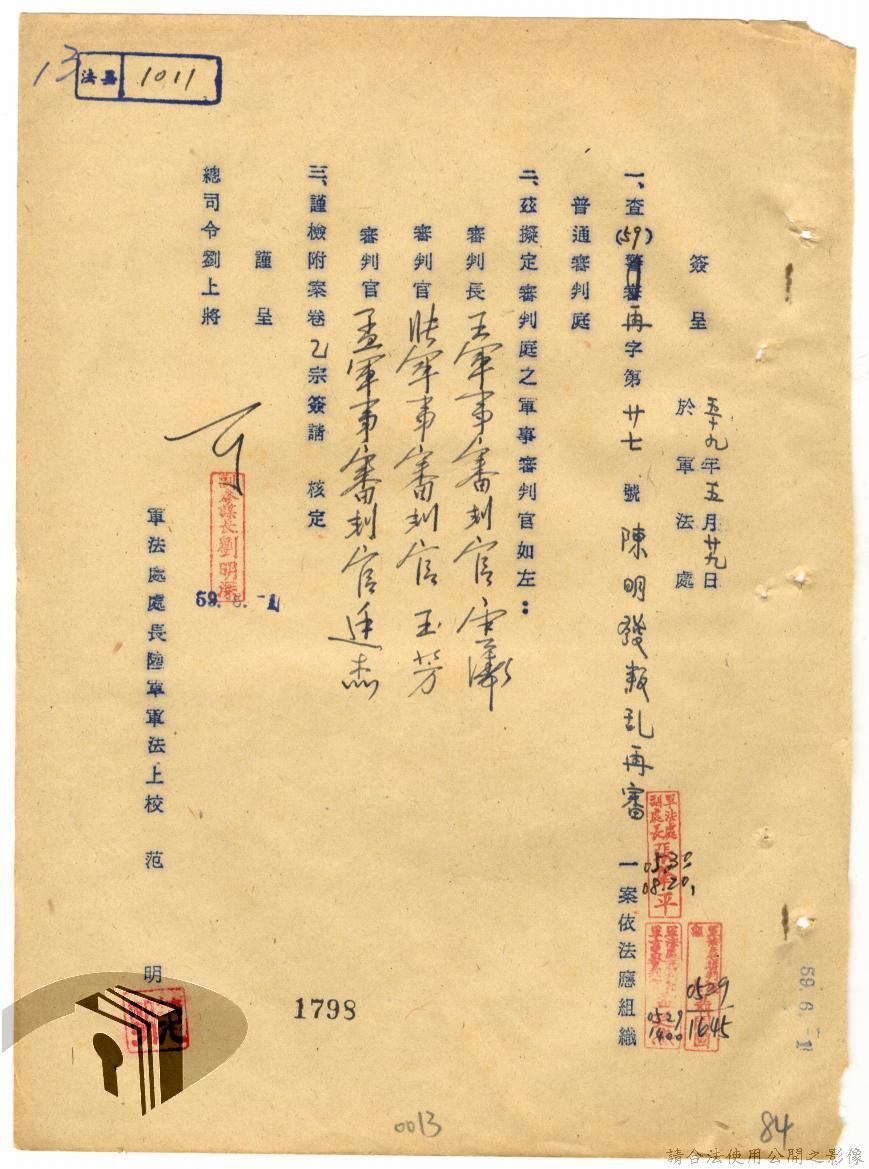 13
法基 1011
簽呈
五十九年五月廿九日
於軍法處
一、查(59)警審再字第廿七號 陳明發叛乱再審 一案依法應組織
普通審判庭
二、茲擬定審判庭之軍事審判官如左：
審判長 王軍事審判官雲漪
審判官 張軍事審判官玉芳
審判官 孟軍事審判官廷杰
三、謹檢附案卷乙宗簽請 核定
謹呈
總司令劉上將
可
副參謀長劉明深
59. 6. -1
軍法處處長陸軍軍法上校 范 明
軍法處副處長
平
0530
0820
0529
1400
0529
1645
59. 6. -1
1798
0013
84
請合法使用公開之影像